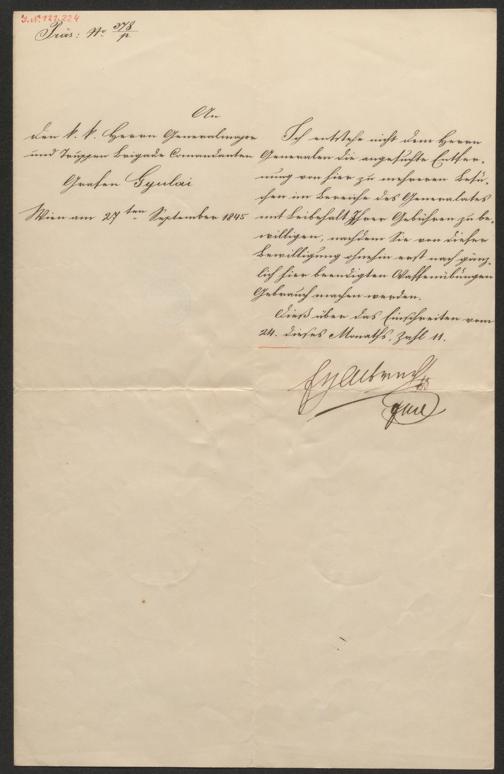 I.N. 121.224
Präs: No 378/p
An
den k. k. Herrn Generalmajor
und Truppen Brigade Comandanten
Grafen Gyulai
Wien am 27ten September 1845
Ich entstehe nicht dem Herrn
Generalen die angesuchte Entfer-
nung von hier zu mehreren Besu-
chen im Bereiche des Generalates
mit Beibehalt Ihrer Gebühren zu be-
willigen, nachdem Sie von dieser
Bewilligung ohnehin erst nach gänz-
lich hier beendigten Waffenübungen
Gebrauch machen werden.
Dieß über das Einschreiten vom
24. dieses Monaths, Zahl 11.
EHAlbrecht